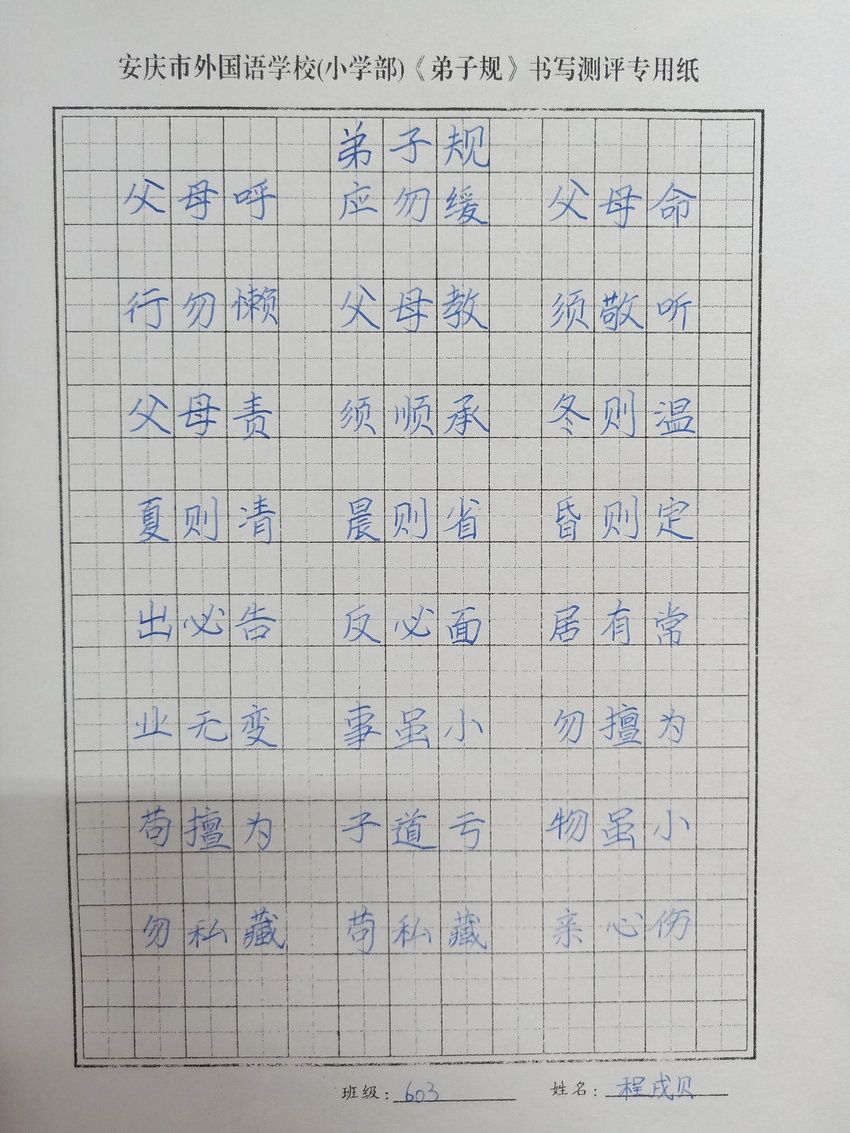 安庆市外国语学校(小学部)《弟子规》书写测评专用纸
弟子规
父母呼 应勿缓 父母命
行勿懒 父母教 须敬听
父母责 须顺承 冬则温
夏则凊 晨则省 昏则定
出必告 反必面 居有常
业无变 事虽小 勿擅为
苟擅为 子道亏 物虽小
勿私藏 苟私藏 亲心伤
班级：603 姓名：程戌贝